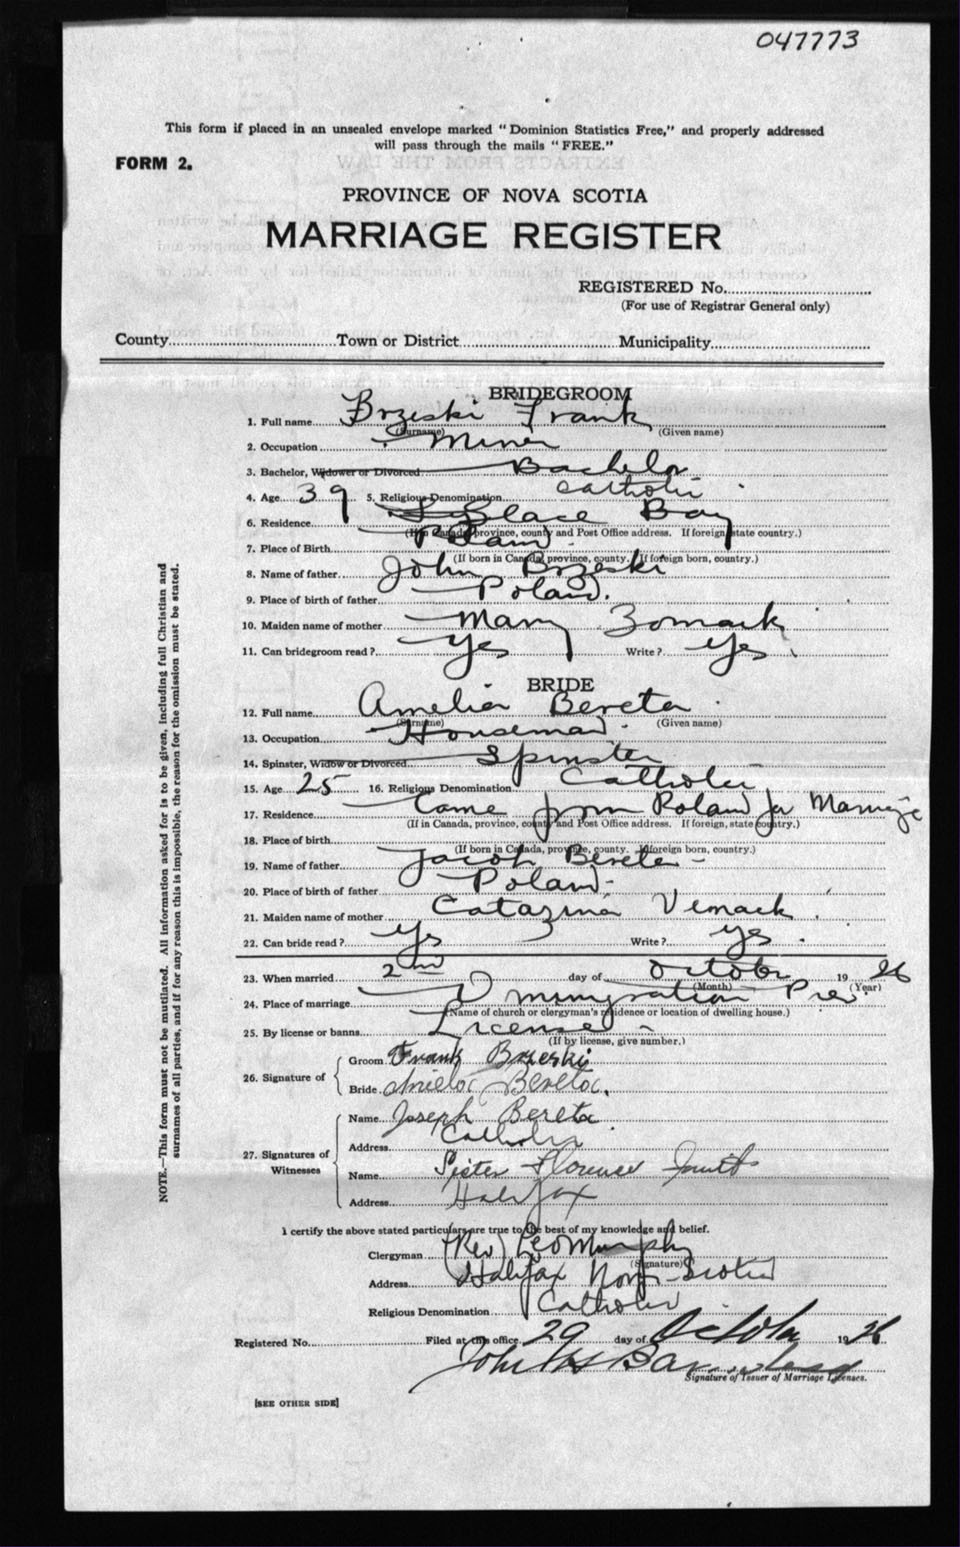 047773
This form if placed in an unsealed envelope marked "Dominion Statistics Free," and properly addressed
will pass through the mails "FREE."
FORM 2.
PROVINCE OF NOVA SCOTIA
MARRIAGE REGISTER
REGISTERED No.
(For use of Registrar General only)
County Town or District Municipality
BRIDEGROOM
1. Full name Brzeski Frank
(Surname) (Given name)
2. Occupation Miner
3. Bachelor, Widower or Divorced Bachelor
4. Age 39 5. Religious Denomination Catholic
6. Residence Glace Bay
(If in Canada, province, county and Post Office address. If foreign, state country.)
7. Place of Birth Poland
(If born in Canada, province, county. If foreign born, country.)
8. Name of father John Brzeski
9. Place of birth of father Poland.
10. Maiden name of mother Mary Zomack
11. Can bridegroom read? Yes Write? Yes
BRIDE
12. Full name Amelia Bereta
(Surname) (Given name)
13. Occupation Housemaid
14. Spinster, Widow or Divorced Spinster
15. Age 25 16. Religious Denomination Catholic
17. Residence Came from Poland for Marriage
(If in Canada, province, county and Post Office address. If foreign, state country.)
18. Place of birth
(If born in Canada, province, county. If foreign born, country.)
19. Name of father Jacob Bereta -
20. Place of birth of father Poland -
21. Maiden name of mother Catazina Vemack
22. Can bride read? Yes Write? Yes
23. When married 2nd day of October 19 26
(Month) (Year)
24. Place of marriage Immigration Pier
(Name of church or clergyman's residence or location of dwelling house.)
25. By license or banns License -
(If by license, give number.)
26. Signature of
Groom Frank Brzeski
Bride Aniela Bereta.
27. Signatures of Witnesses
Name Joseph Bereta
Address Catholic
Name Sister Florence Smith
Address Halifax
I certify the above stated particulars are true to the best of my knowledge and belief.
Clergyman (Rev) Leo Murphy
(Signature)
Address Halifax Nova Scotia
Religious Denomination Catholic
Registered No. Filed at this office 29 day of October 19 26
John
Signature of Issuer of Marriage Licenses.
[SEE OTHER SIDE]
NOTE.—This form must not be mutilated. All information asked for is to be given, including full Christian and
surnames of all parties, and if for any reason this is impossible, the reason for the omission must be stated.